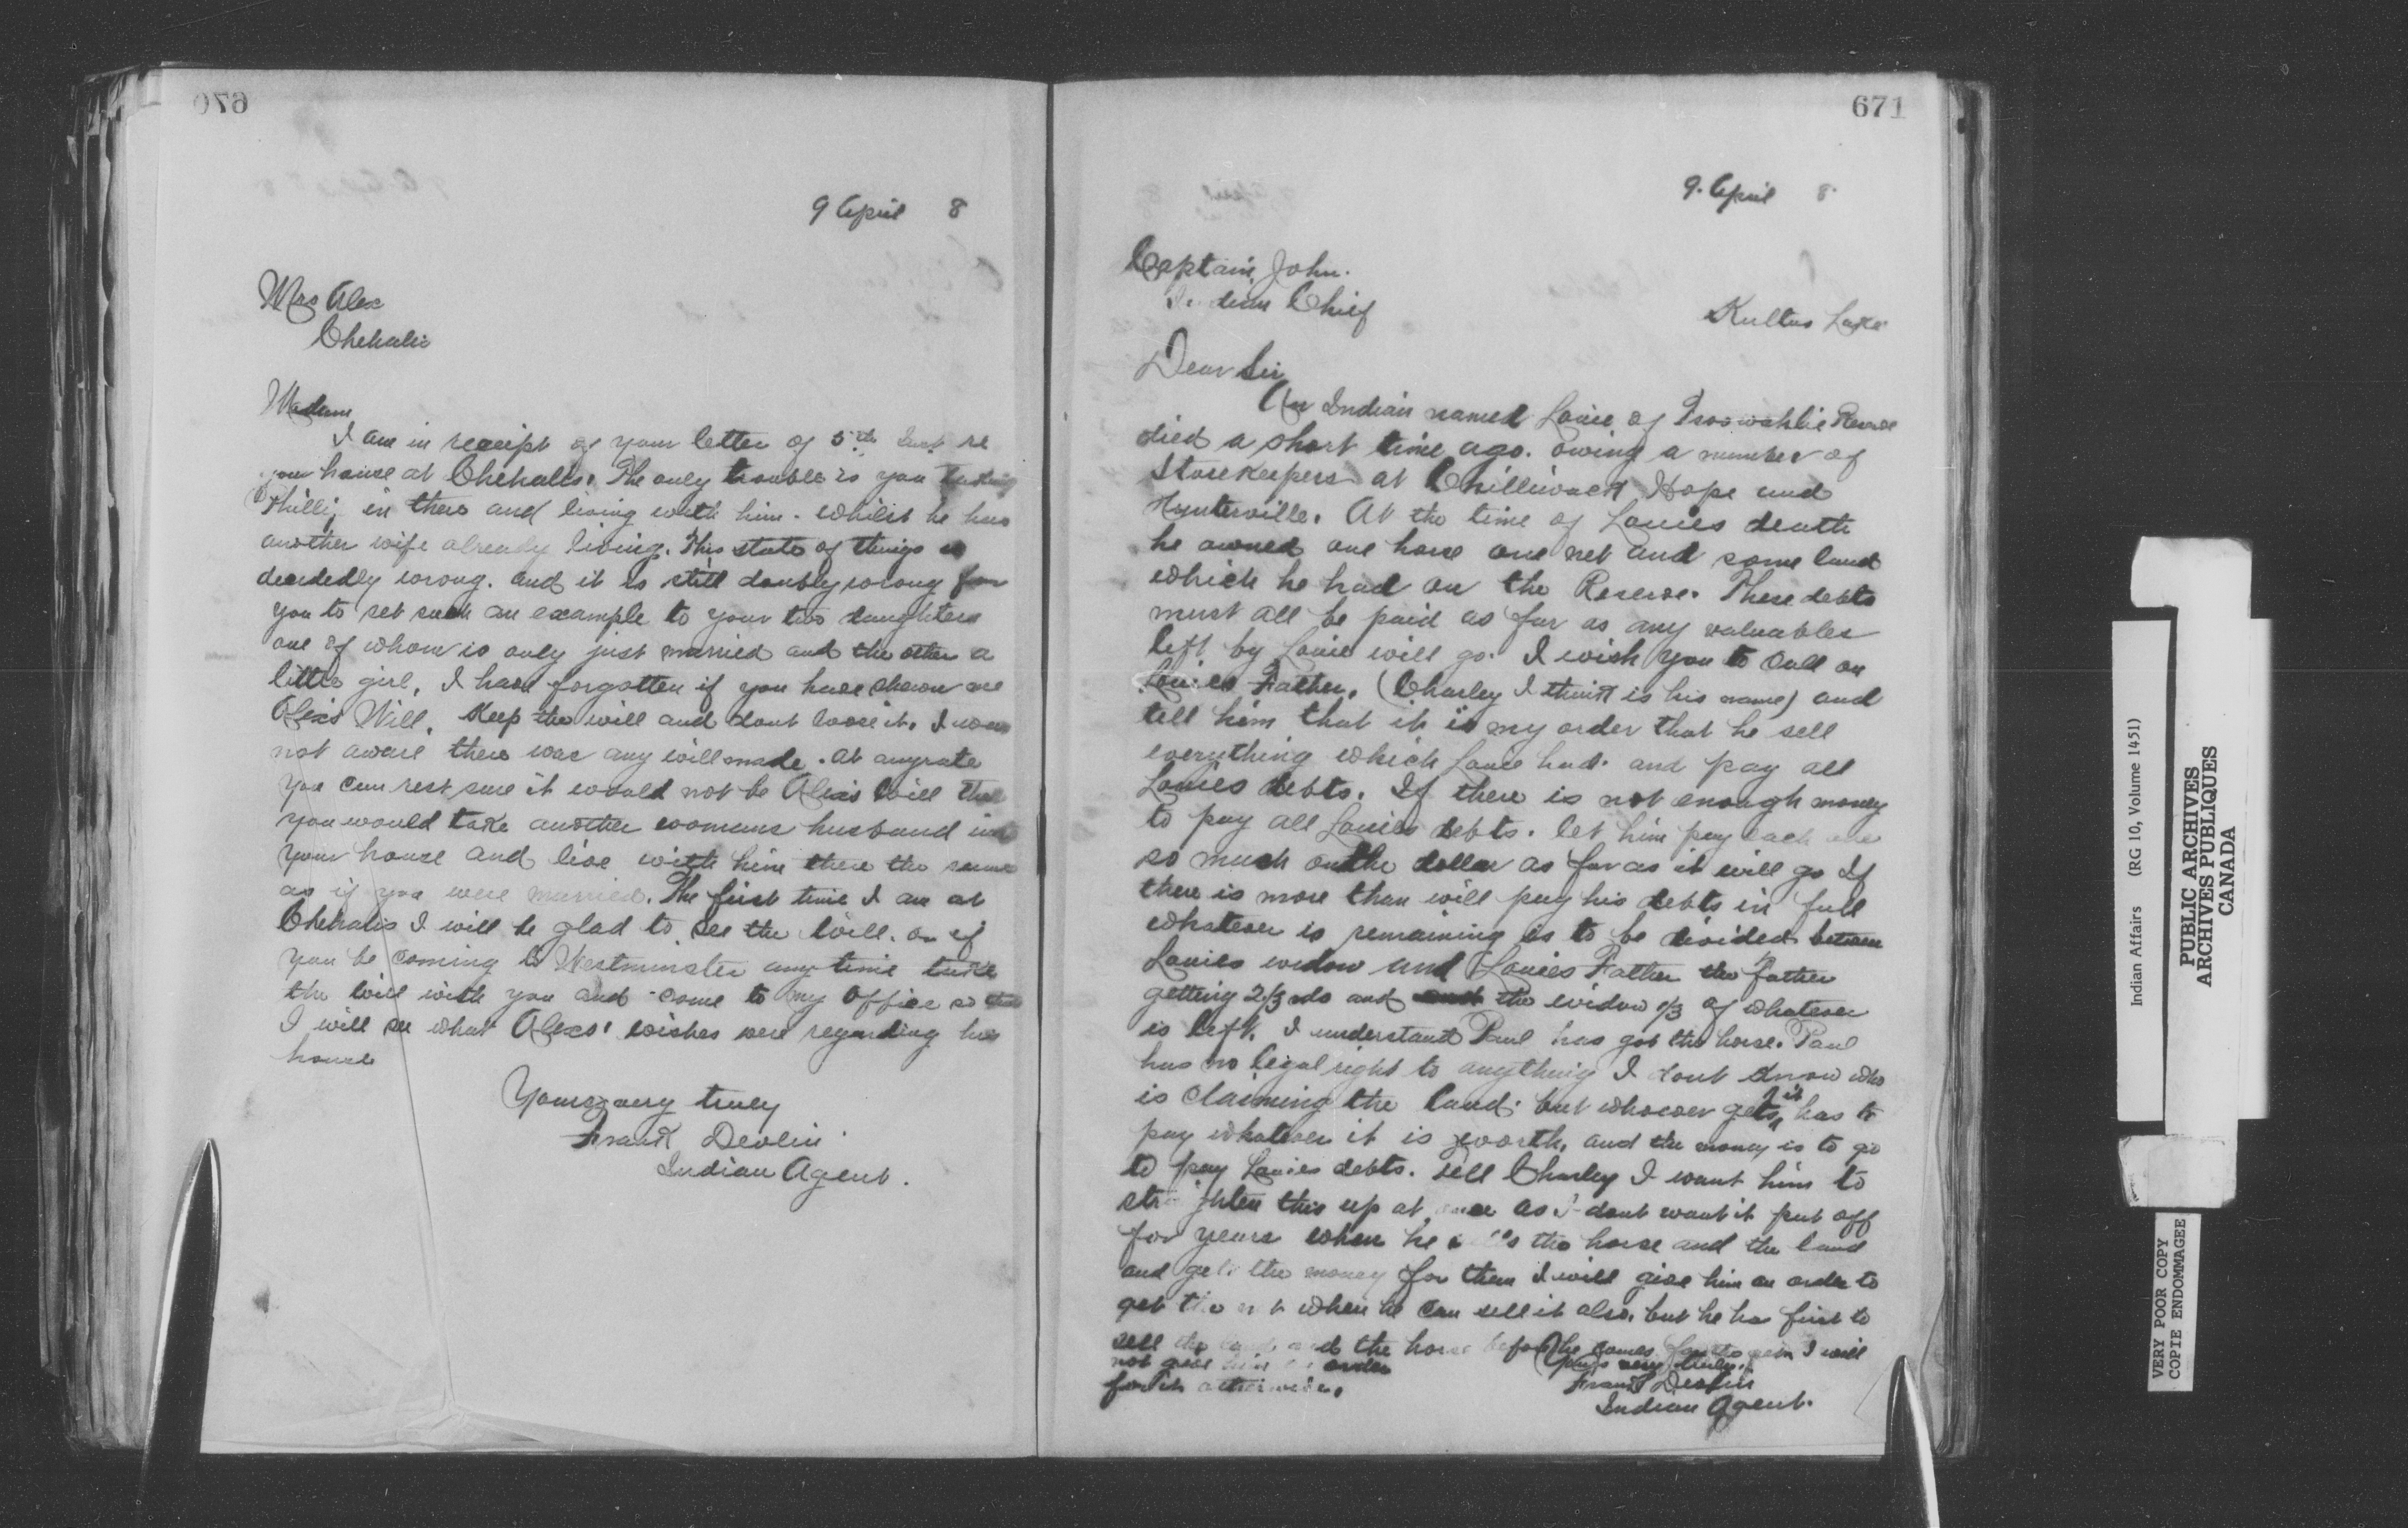 670
9 April 8
Mrs Alex
Chehalis
Madam
I am in receipt of your letter of 5th Inst re
your house at Chehalis. The only trouble is you taking
Phillip in there and living with him. whilst he has
another wife already living. This state of things is
decidedly wrong. and it is still doubly wrong for
you to set such an example to your two daughters
one of whom is only just married and the other a
little girl, I have forgotten if you have shown me
Alex's Will. Keep the will and dont loose it. I was
not aware there was any will made. at anyrate
you can rest sure it would not be Alex's will that
you would take another womans husband into
your house and live with him there the same
as if you were married. The first time I am at
Chehalis I will be glad to see the will. or if
you be coming to Westminster any time take
the will with you and come to my office so that
I will see what Alexs' wishes were regarding his
house
Yours very truly
Frank Devlin
Indian Agent.
671
9. April 8
Captain John.
Indian Chief
Kultus Lake
Dear Sir
An Indian named Louie of Tsoowahlie Reserve
died a short time ago. owing a number of
Storekeepers at Chilliwack Hope and
Hunterville. At the time of Louies death
he owned one horse one net and some land
which he had on the Reserve. These debts
must all be paid as far as any valuables
left by Louie will go. I wish you to call on
Louies Father. (Charley I think is his name) and
tell him that it is my order that he sell
everything which Louie had. and pay all
Louies debts. If there is not enough money
to pay all Louies debts. let him pay each one
so much on the dollar as far as it will go If
there is more than will pay his debts in full
whatever is remaining is to be divided between
Louies widow and Louies Father the father
getting 2/3rds and the widow 1/3 of whatever
is left. I understand Paul has got the horse. Paul
has no legal right to anything I dont know who
is claiming the land. but whoever gets it has to
pay whatever it is worth, and the money is to go
to pay Louies debts. tell Charley I want him to
straighten this up at once as I dont want it put off
for years when he sells the horse and the land
and gets the money for them I will give him an order to
get the net when he can sell it also. but he has first to
sell the land and the horse before he comes for the I will
not give him an order
for it otherwise.
Yours very truly.
Frank Devlin
Indian Agent.
Indian Affairs (RG 10, Volume 1451)
PUBLIC ARCHIVES
ARCHIVES PUBLIQUES
CANADA
VERY POOR COPY
COPIE ENDOMMAGEE